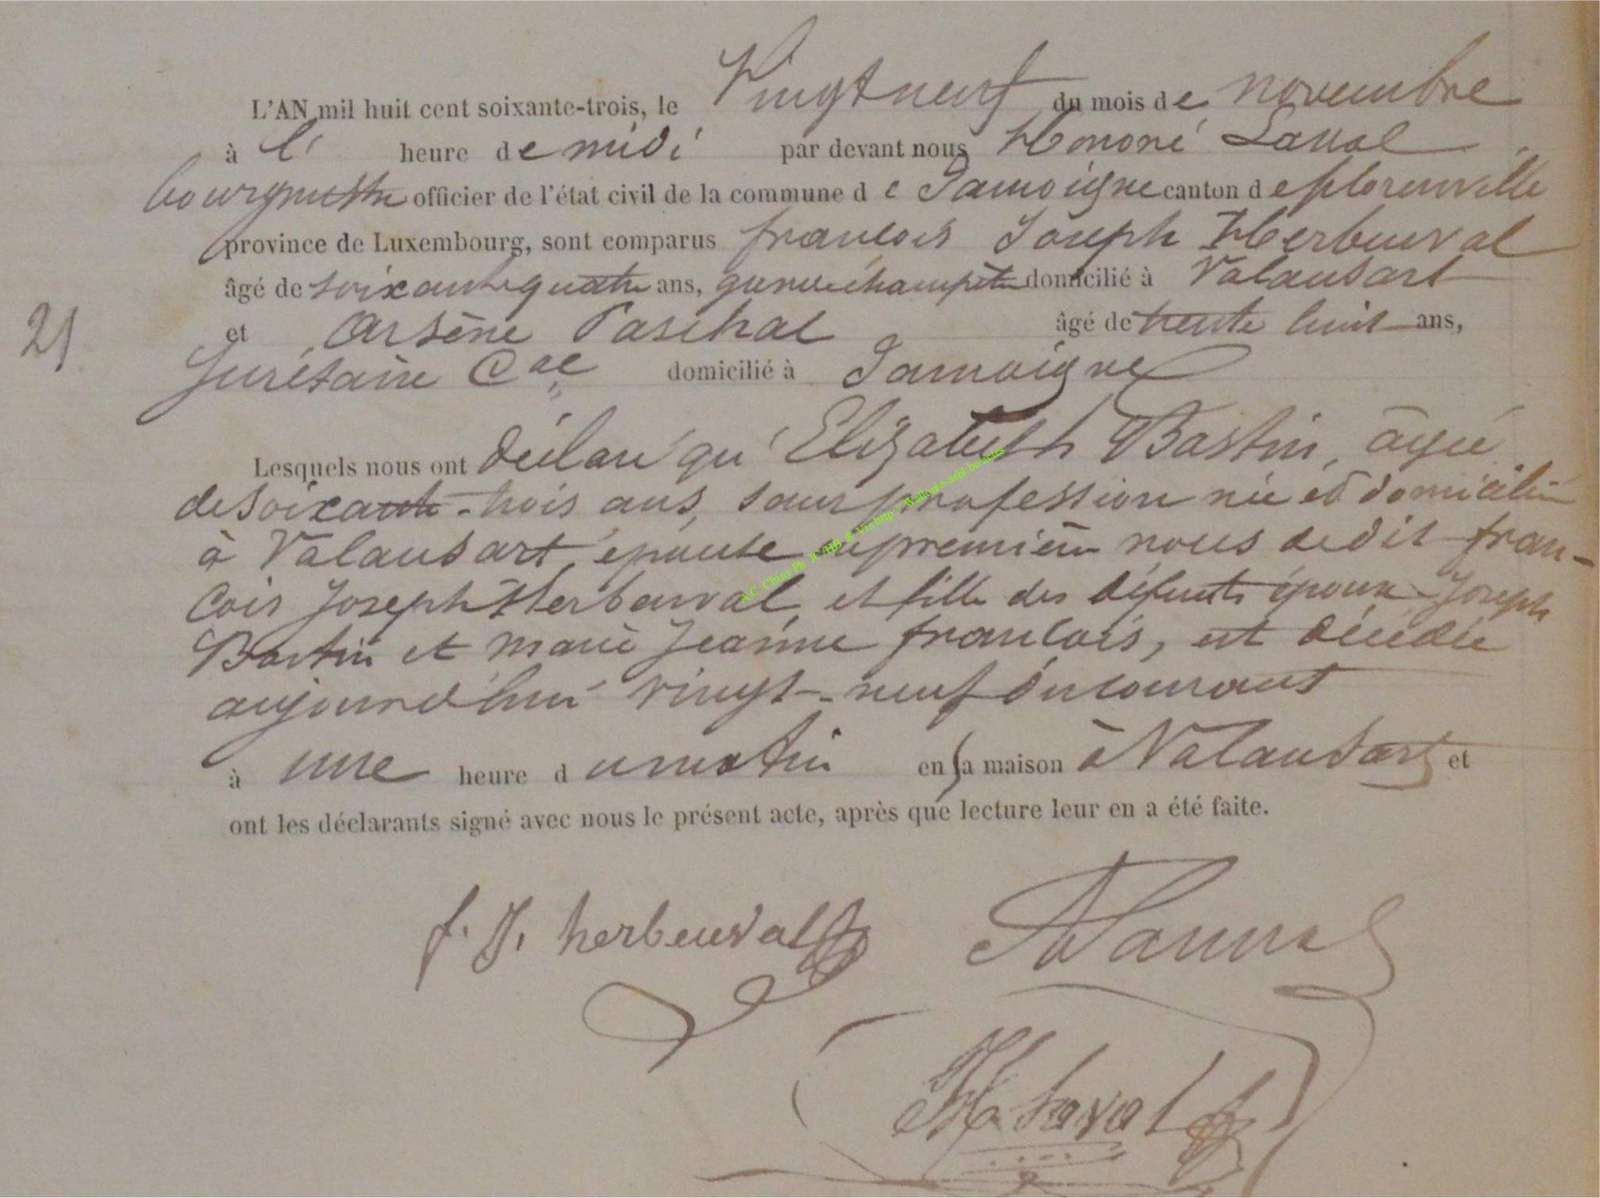 L'AN mil huit cent soixante-trois, le Vingt neuf du mois de novembre
à l' heure de midi par devant nous Honoré Laval
bourgmestre officier de l'état civil de la commune de Jamoigne canton de florenville
province de Luxembourg, sont comparus francois Joseph Herbeuval
âgé de soixante quatre ans, garde champêtre domicilié à Valansart
21
et Arsène Paschal âgé de trente huit ans,
Secrétaire Cal domicilié à Jamoigne
Lesquels nous ont déclaré qu' Elizabeth Bastin, âgée
de soixante-trois ans, sans profession née et domiciliée
à Valansart, épouse de premier nous dedit fran-
cois Joseph Herbeuval et fille des défunts époux Joseph
Bastin et marie Jeanne francois, est décédée
aujourd'hui vingt-neuf du courant
à une heure du matin en sa maison à Valansart et
ont les déclarants signé avec nous le présent acte, après que lecture leur en a été faite.
f. J. herbeuval
H. Laval